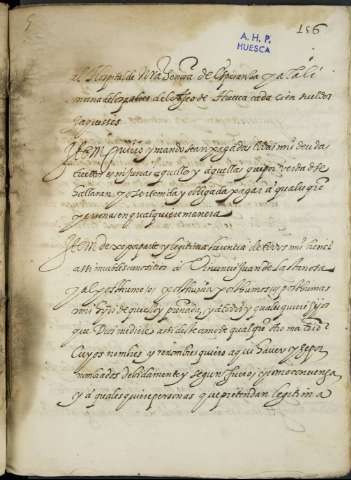 156
A. H. P.
HUESCA
al Hospital de Ñra Señora de Esperança y a la li
mosna de los pobres del Asseo de Huesca cada cien sueldos
Jaqueses
Item quiero y mando sean pagados todos mis deudas
tuertos e injurias aquellos y aquellas que por verdad se
hallaran yo ser tenida y obligada pagar a quales quie
personas en qualquiere manera
Item dexo por parte y legitima herencia de todos mis bienes
assi muebles como sitios a Juan de
y al posthumo o posthuma posthumos o posthumas
o mi hijo de quien soy preñada, y a todos y quales quiere hijos
que Dios me diere assi deste como de qual quie otro matrimo
Cuyos nombres y renombres quiero aqui haver y por
nombrados debidamente y segun fuero y como convenga
y a quales quiere personas que pretendan legitima